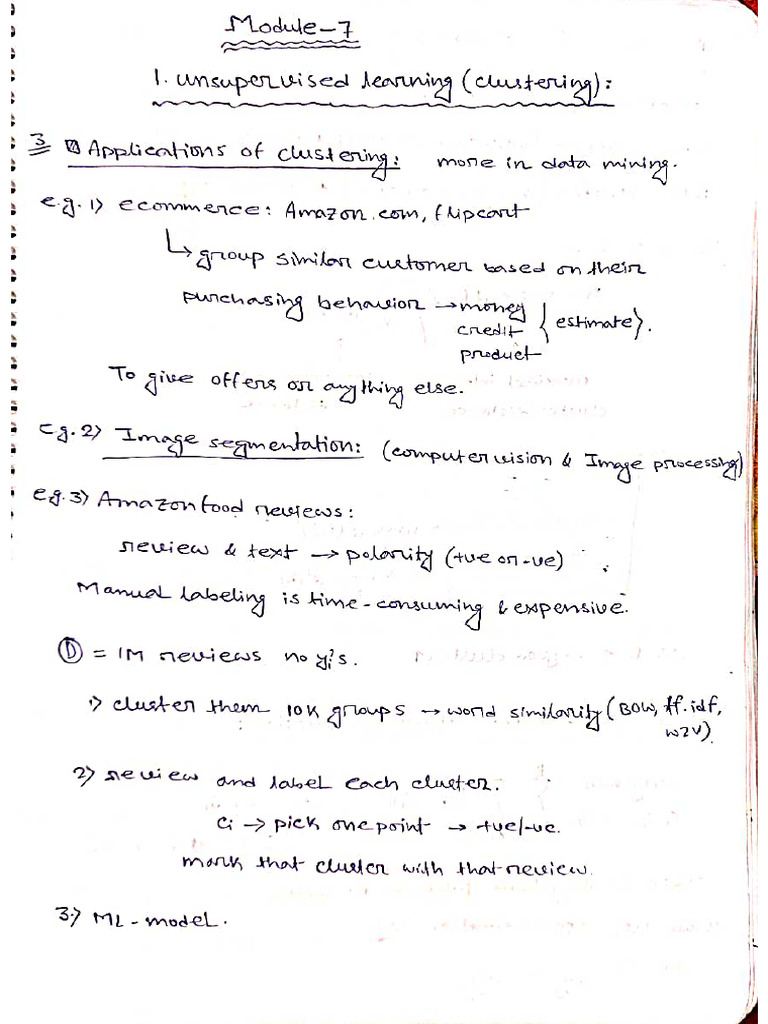 Module-7
1. Unsupervised learning (clustering):
3 Applications of clustering: more in data mining.
e.g. 1) ecommerce: Amazon.com, flipcart
↳ group similar customer based on their
purchasing behavior → money
credit } estimate}.
product
To give offers or anything else.
e.g. 2) Image segmentation: (computer vision & Image processing)
e.g. 3) Amazon food reviews:
review & text → polarity (+ve or -ve)
Manual labeling is time-consuming & expensive.
D = 1M reviews no yi's.
1) cluster them 10K groups → word similarity (BOW, tf.idf,
w2v).
2) review and label each cluster.
Ci → pick one point → +ve/-ve.
mark that cluster with that review.
3.) ML-model.